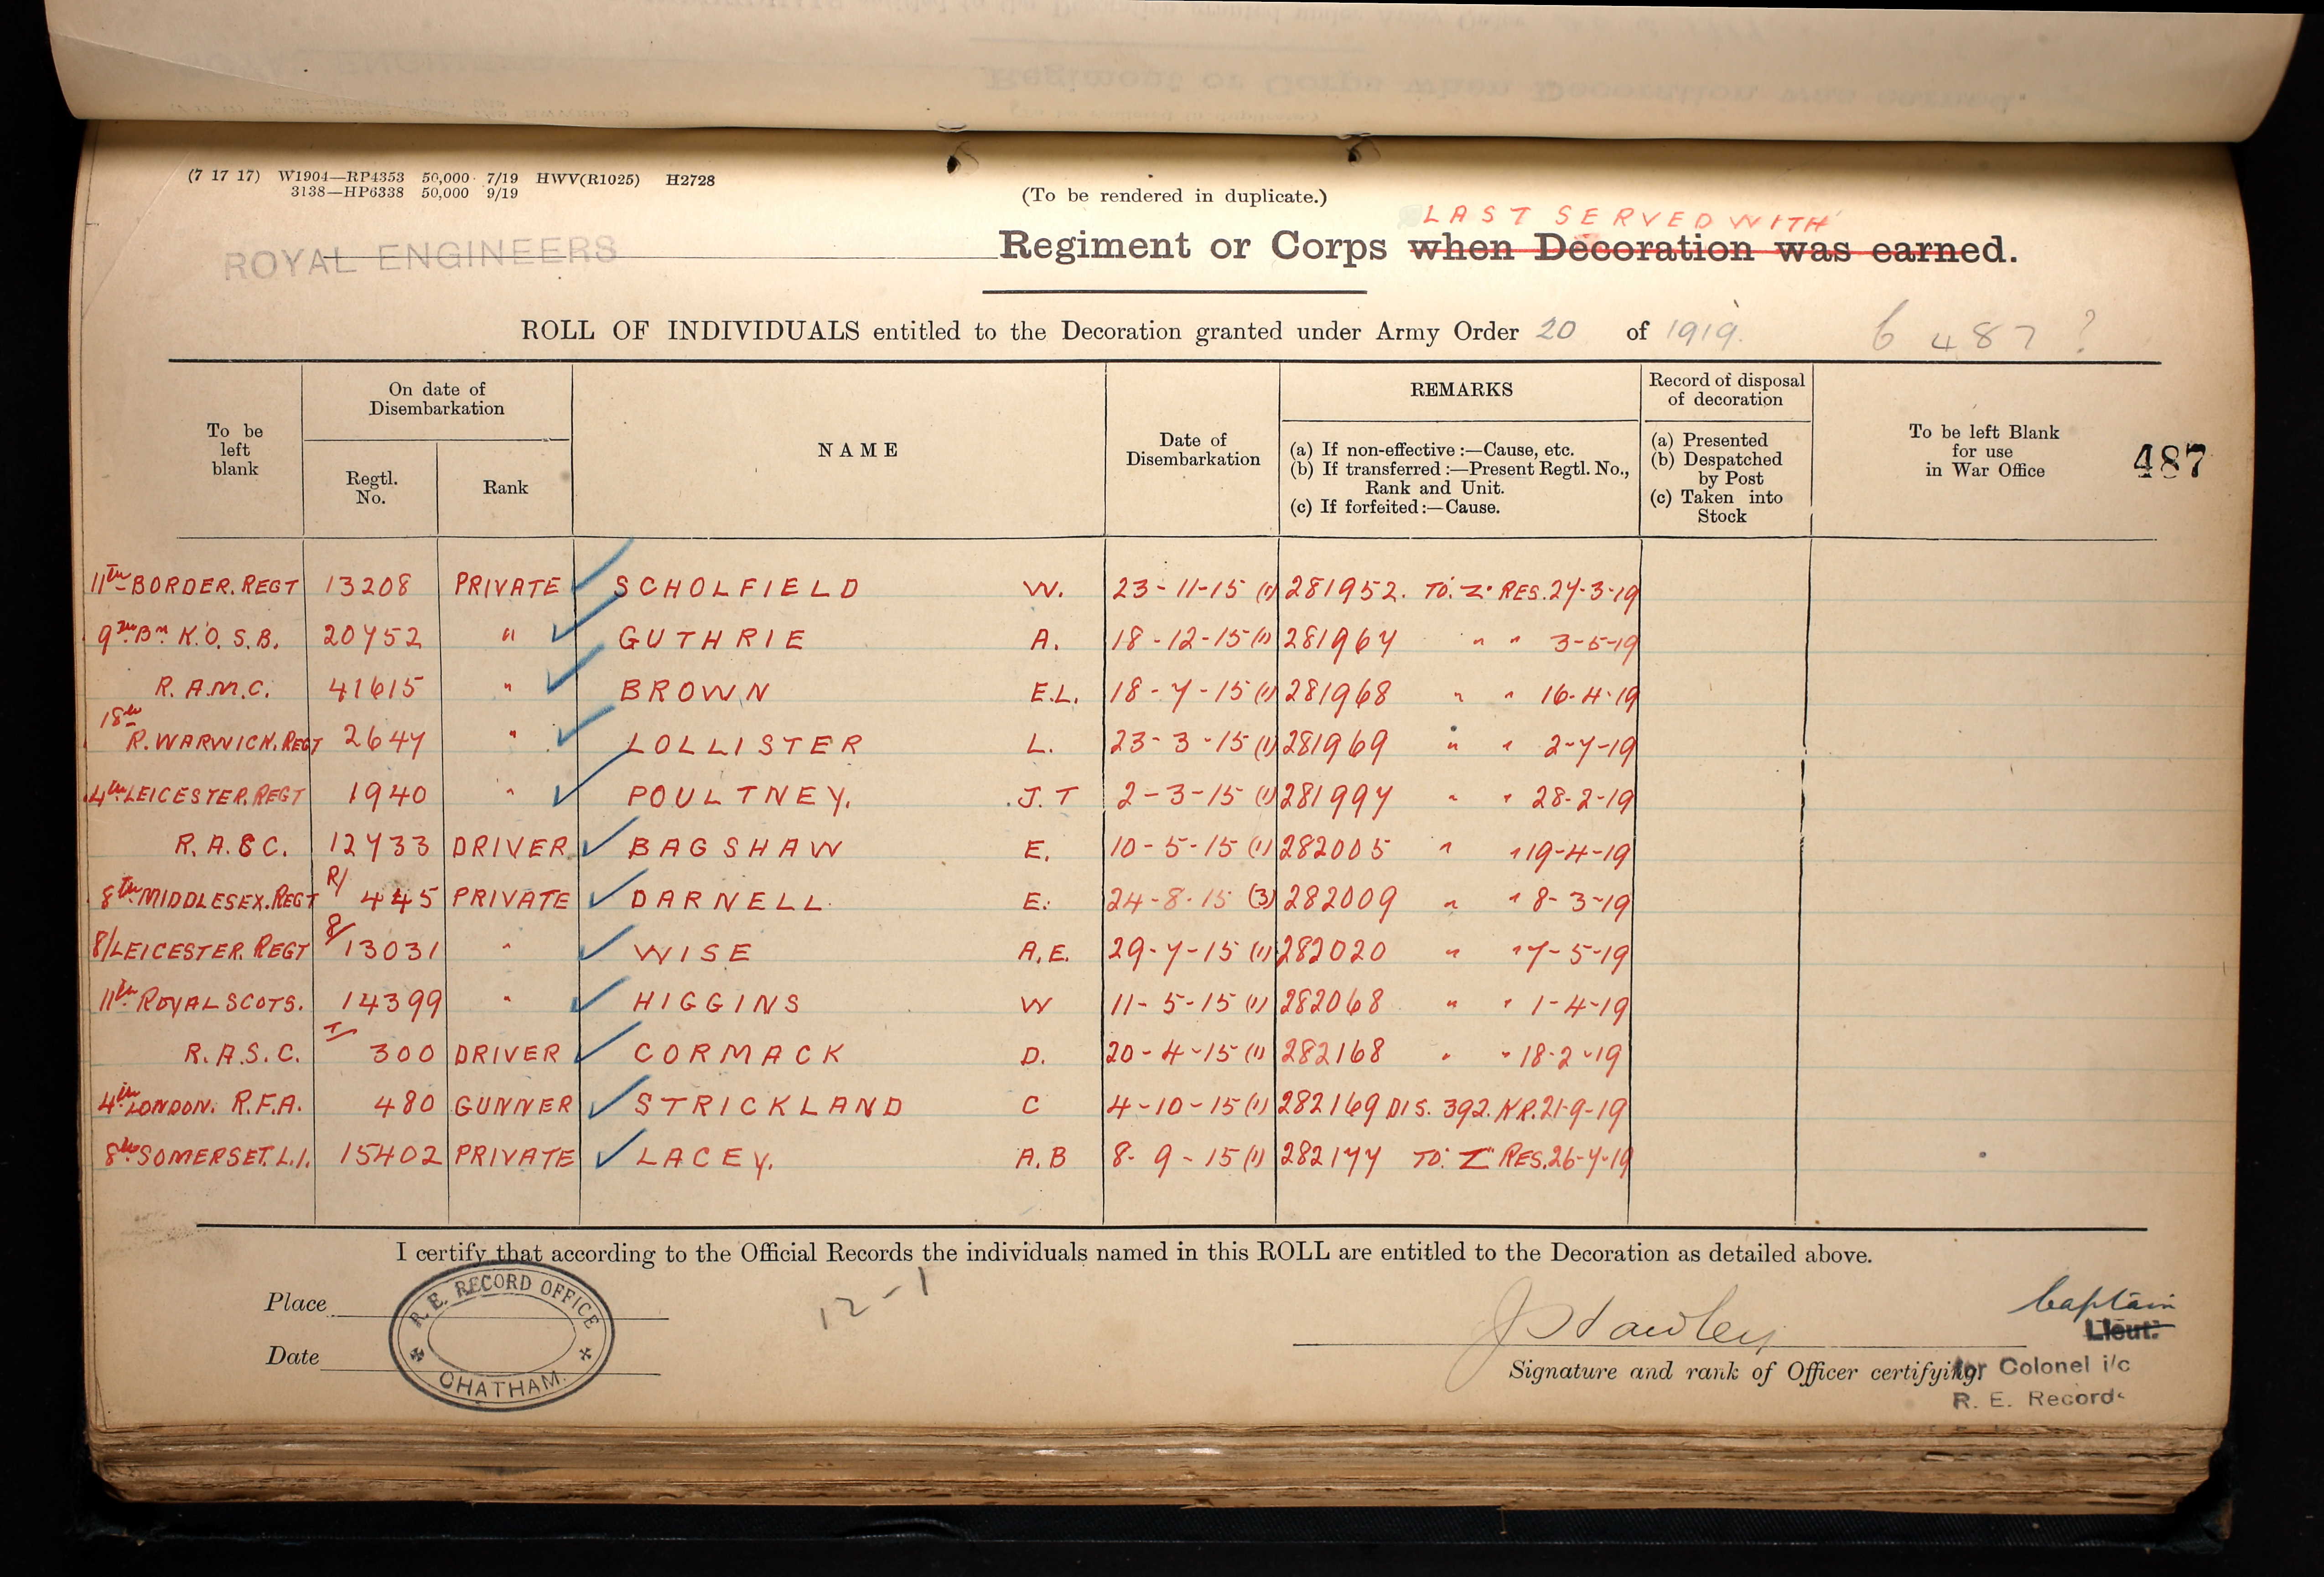 (7 17 17) W1904—RP4353 50,000 7/19 HWV(R1025) H2728
3138—HP6338 50,000 9/19
(To be rendered in duplicate.)
LAST SERVED WITH
ROYAL ENGINEERS Regiment or Corps when Decoration was earned.
ROLL OF INDIVIDUALS entitled to the Decoration granted under Army Order 20 of 1919. 6 487 ?
To be left blank
On date of Disembarkation
Regtl. No.
Rank
NAME
Date of Disembarkation
REMARKS
(a) If non-effective :—Cause, etc.
(b) If transferred :—Present Regtl. No., Rank and Unit.
(c) If forfeited :—Cause.
Record of disposal of decoration
(a) Presented
(b) Despatched by Post
(c) Taken into Stock
To be left Blank for use in War Office
487
11th BORDER. REGT 13208 PRIVATE SCHOLFIELD W. 23-11-15 (1) 281952. TO. "Z" RES. 27-3-19
9th Bn K.O.S.B. 20752 " GUTHRIE A. 18-12-15 (1) 281967 " " 3-5-19
R.A.M.C. 41615 " BROWN E.L. 18-7-15 (1) 281968 " " 16-4-19
18th R. WARWICK. REGT 2647 " LOLLISTER L. 23-3-15 (1) 281969 " " 2-7-19
4th LEICESTER. REGT 1940 " POULTNEY. J.T 2-3-15 (1) 281997 " " 28-2-19
R.A.S C. 12733 DRIVER BAGSHAW E. 10-5-15 (1) 282005 " " 19-4-19
8th MIDDLESEX. REGT R/ 445 PRIVATE DARNELL E. 24-8-15 (3) 282009 " " 8-3-19
8/LEICESTER. REGT 8/13031 " WISE A.E. 29-7-15 (1) 282020 " " 7-5-19
11th ROYAL SCOTS. 14399 " HIGGINS W 11-5-15 (1) 282068 " " 1-4-19
R.A.S.C. T/ 300 DRIVER CORMACK D. 20-4-15 (1) 282168 " " 18-2-19
4th LONDON. R.F.A. 480 GUNNER STRICKLAND C 4-10-15 (1) 282169 DIS. 392. K.R. 21-9-19
8th SOMERSET. L.I. 15402 PRIVATE LACEY. A.B 8-9-15 (1) 282177 TO. "Z" RES. 26-7-19
I certify that according to the Official Records the individuals named in this ROLL are entitled to the Decoration as detailed above.
Place
Date
R. E. RECORD OFFICE
CHATHAM.
12-1
Captain
Lieut.
Signature and rank of Officer certifying.
for Colonel i/c
R. E. Records